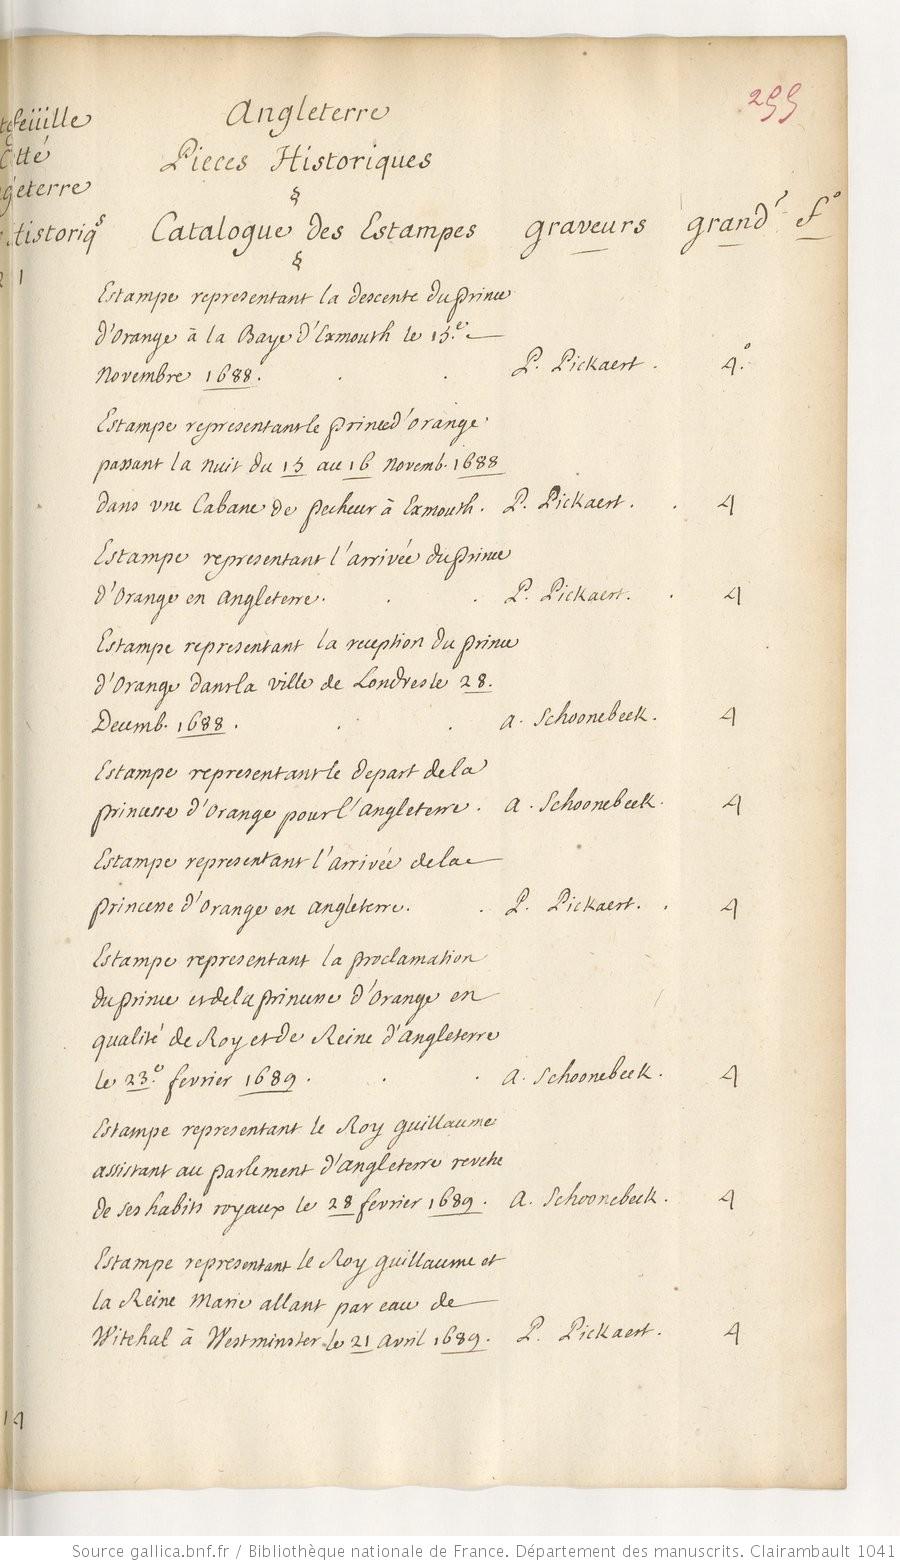 299
tefeüille
Cotté
ngleterre
Historiq.s
21
Angleterre
Pieces Historiques
§
Catalogue des Estampes graveurs grand.r f.o
§
Estampe representant la descente du prince
d'Orange à la Baye d'Exmouth le 15.e
Novembre 1688. P. Pickaert. 4.o
Estampe representant le prince d'orange
passant la nuit du 15 au 16 novemb. 1688
dans vne Cabane de pecheur à Exmouth. P. Pickaert. 4
Estampe representant l'arrivée du prince
d'Orange en angleterre. P. Pickaert. 4
Estampe representant la reception du prince
d'Orange dans la ville de Londres le 28.
Decemb. 1688. a. Schoonebeek. 4
Estampe representant le depart de la
princesse d'Orange pour l'angleterre. a. Schoonebeek. 4
Estampe representant l'arrivée de la
princesse d'Orange en angleterre. P. Pickaert. 4
Estampe representant la proclamation
du prince et de la princesse d'Orange en
qualité de Roy et de Reine d'angleterre
le 23.e fevrier 1689. a. Schoonebeek. 4
Estampe representant le Roy guillaume
assistant au parlement d'angleterre revetu
de ses habits royaux le 28 fevrier 1689. a. Schoonebeek. 4
Estampe representant le Roy guillaume et
la Reine Marie allant par eau de
Witehal à Westminster le 21 avril 1689. P. Pickaert. 4
14
Source gallica.bnf.fr / Bibliothèque nationale de France. Département des manuscrits. Clairambault 1041